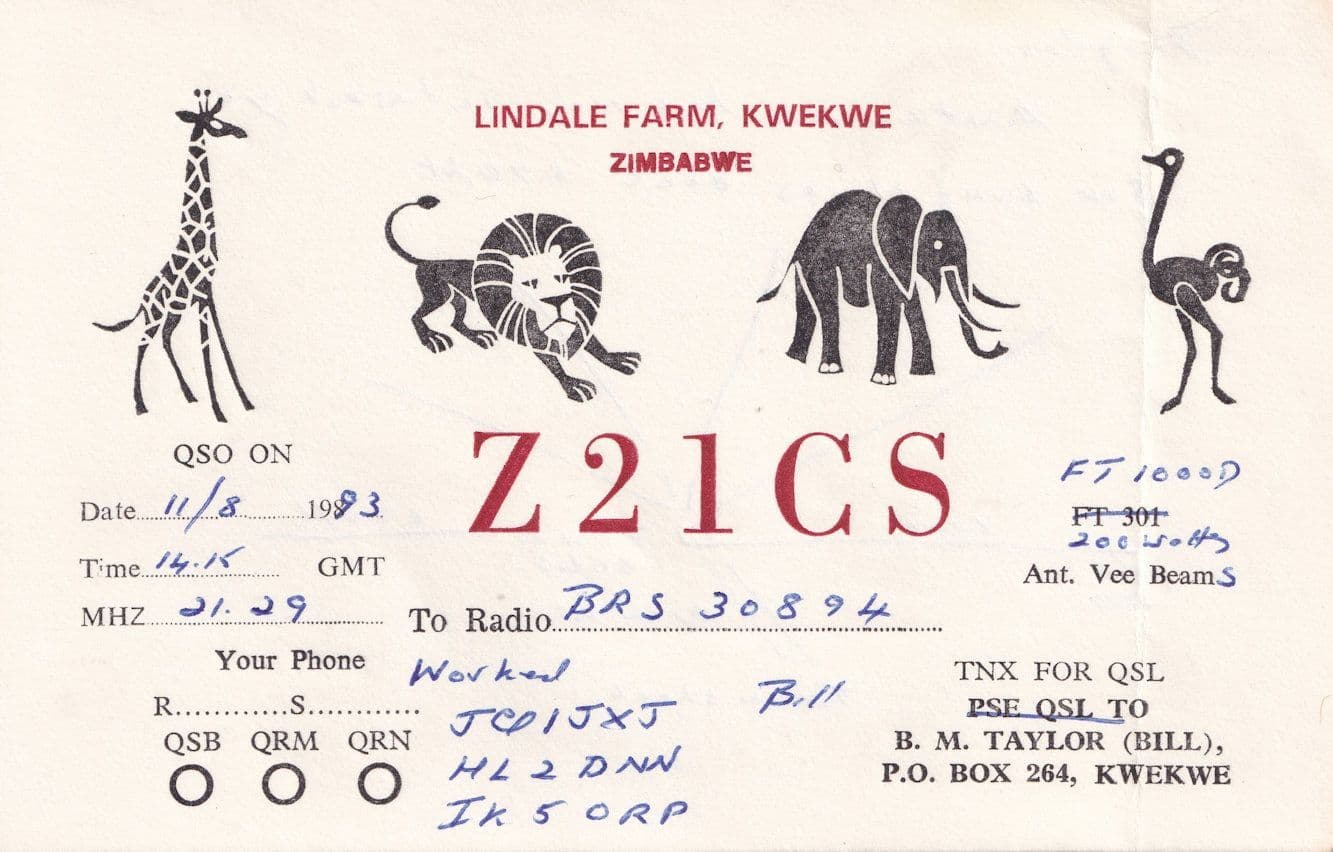 LINDALE FARM, KWEKWE
ZIMBABWE
Z21CS
QSO ON
Date 11/8 1993
Time 14.15 GMT
MHZ 21.29
Your Phone
R............S............
QSB QRM QRN
To Radio BRS 30894
Worked
JQ1JXJ
HL2DNN
IK5ORP
Bill
FT 1000D
FT 301
200 watts
Ant. Vee Beams
TNX FOR QSL
PSE QSL TO
B. M. TAYLOR (BILL),
P.O. BOX 264, KWEKWE